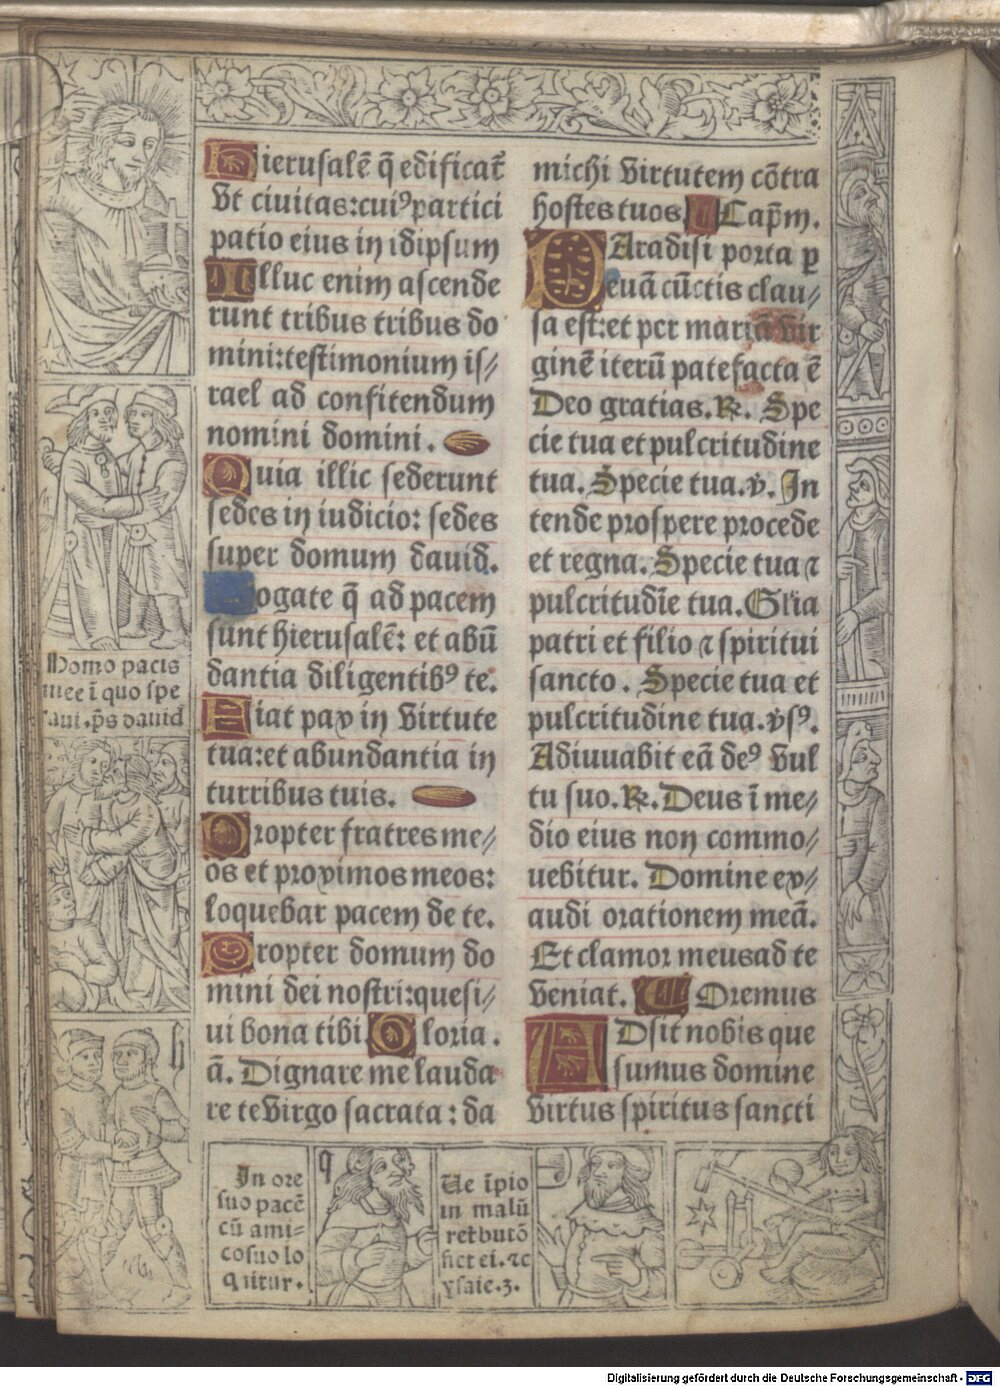 Hierusalē q̄ edificat᷑
Vt ciuitas: cuiꝰ partici
patio eius in idipsum
Illuc enim ascende
runt tribus tribus do
mini: testimonium is⸗
rael ad confitendum
nomini domini.
Quia illic sederunt
sedes in iudicio: sedes
super domum dauid.
Rogate q̄ ad pacem
sunt hierusalē: et abū
dantia diligentibꝰ te.
Fiat pax in virtute
tua: et abundantia in
turribus tuis.
Propter fratres me⸗
os et proximos meos:
loquebar pacem de te.
Propter domum do
mini dei nostri: quesi⸗
ui bona tibi. Gloria.
ā. Dignare me lauda
re te virgo sacrata: da
michi virtutem cōtra
hostes tuos. Cap̄m.
PAradisi porta p̲
euā cūctis clau⸗
sa est: et per mariā vir
ginē iterū patefacta ē
Deo gratias. ℟. Spe
cie tua et pulcritudine
tua. Specie tua. ℣. In
tende prospere procede
et regna. Specie tua ⁊
pulcritudīe tua. Gl̄ia
patri et filio ⁊ spiritui
sancto. Specie tua et
pulcritudine tua. ℣sꝰ.
Adiuuabit eā deꝰ vul
tu suo. ℟. Deus ī me⸗
dio eius non commo⸗
uebitur. Domine ex⸗
audi orationem meā.
Et clamor meus ad te
veniat. Oremus
ADsit nobis que
sumus domine
virtus spiritus sancti
Homo pacis
mee ī quo spe
raui. p̄s dauid
In ore
suo pacē
cū ami⸗
co suo lo
quitur.
Ue īpio
in malū
retbutō
fiet ei. ⁊c
ysaie. 3.
Digitalisierung gefördert durch die Deutsche Forschungsgemeinschaft - DFG